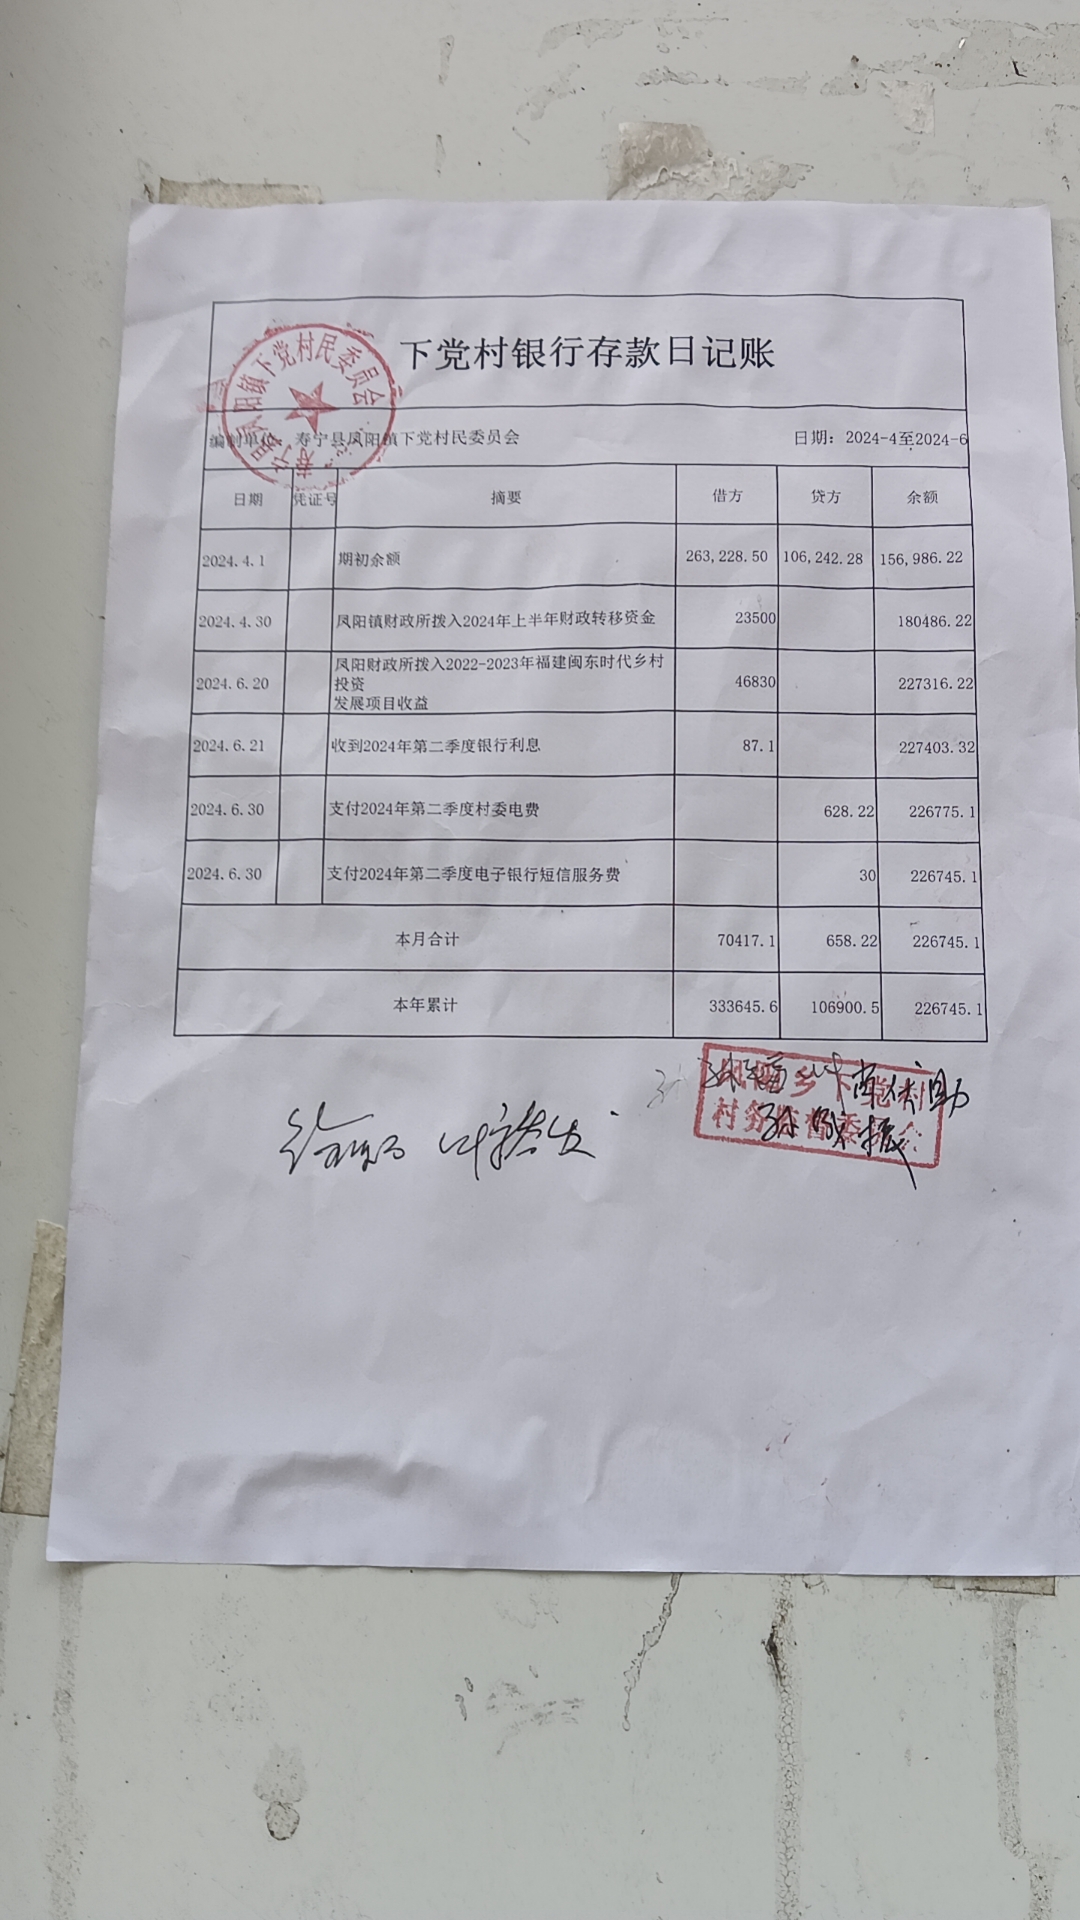 下党村银行存款日记账
编制单位：寿宁县凤阳镇下党村民委员会 日期：2024-4至2024-6
日期 凭证号 摘要 借方 贷方 余额
2024.4.1 期初余额 263,228.50 106,242.28 156,986.22
2024.4.30 凤阳镇财政所拨入2024年上半年财政转移资金 23500 180486.22
2024.6.20 凤阳财政所拨入2022-2023年福建闽东时代乡村
投资
发展项目收益 46830 227316.22
2024.6.21 收到2024年第二季度银行利息 87.1 227403.32
2024.6.30 支付2024年第二季度村委电费 628.22 226775.1
2024.6.30 支付2024年第二季度电子银行短信服务费 30 226745.1
本月合计 70417.1 658.22 226745.1
本年累计 333645.6 106900.5 226745.1
寿宁县凤阳镇下党村民委员会
凤阳乡下党村
村务监督委员会